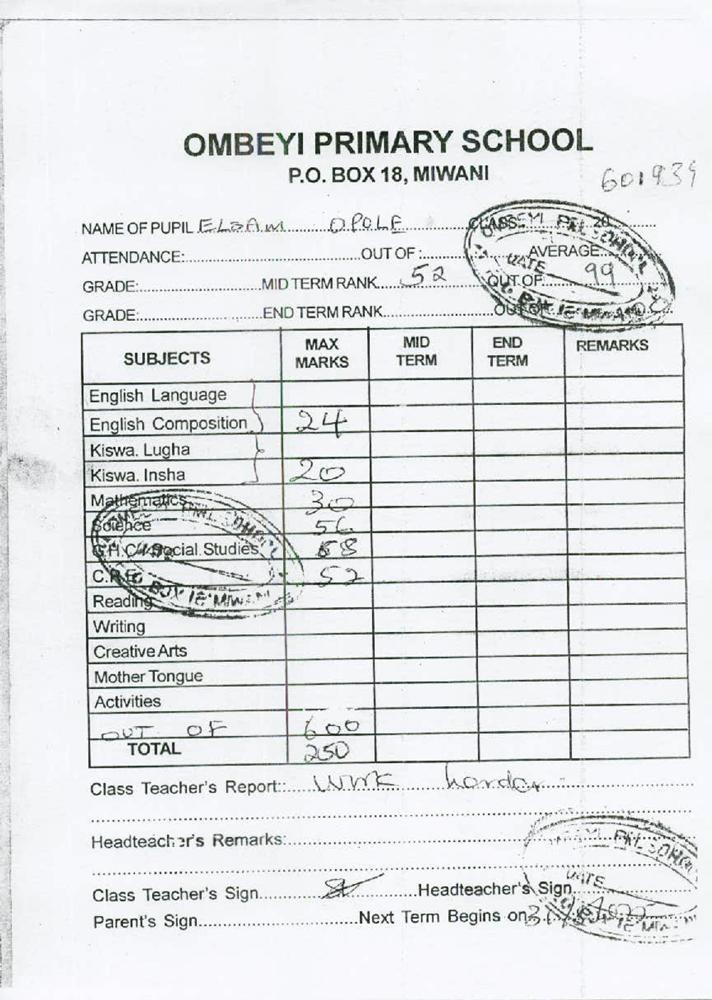 OMBEYI PRIMARY SCHOOL
P.O. BOX 18, MIWANI
601939
NAME OF PUPIL ELZAM OPOLE CLASS 20
ATTENDANCE: OUT OF: AVERAGE
GRADE: MID TERM RANK 52 OUT OF 99
GRADE: END TERM RANK OUT OF
SUBJECTS MAX MARKS MID TERM END TERM REMARKS
English Language
English Composition 24
Kiswa. Lugha
Kiswa. Insha 20
Mathematics 30
Science 56
G.H.C/Social Studies 68
C.R.E 52
Reading
Writing
Creative Arts
Mother Tongue
Activities
OUT OF 600
TOTAL 250
Class Teacher's Report: Work harder
Headteacher's Remarks:
Class Teacher's Sign Headteacher's Sign
Parent's Sign Next Term Begins on